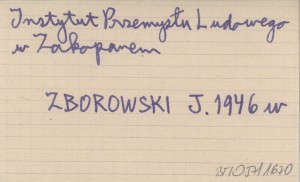 Instytut Przemysłu Ludowego
w Zakopanem
ZBOROWSKI J. 1946 w